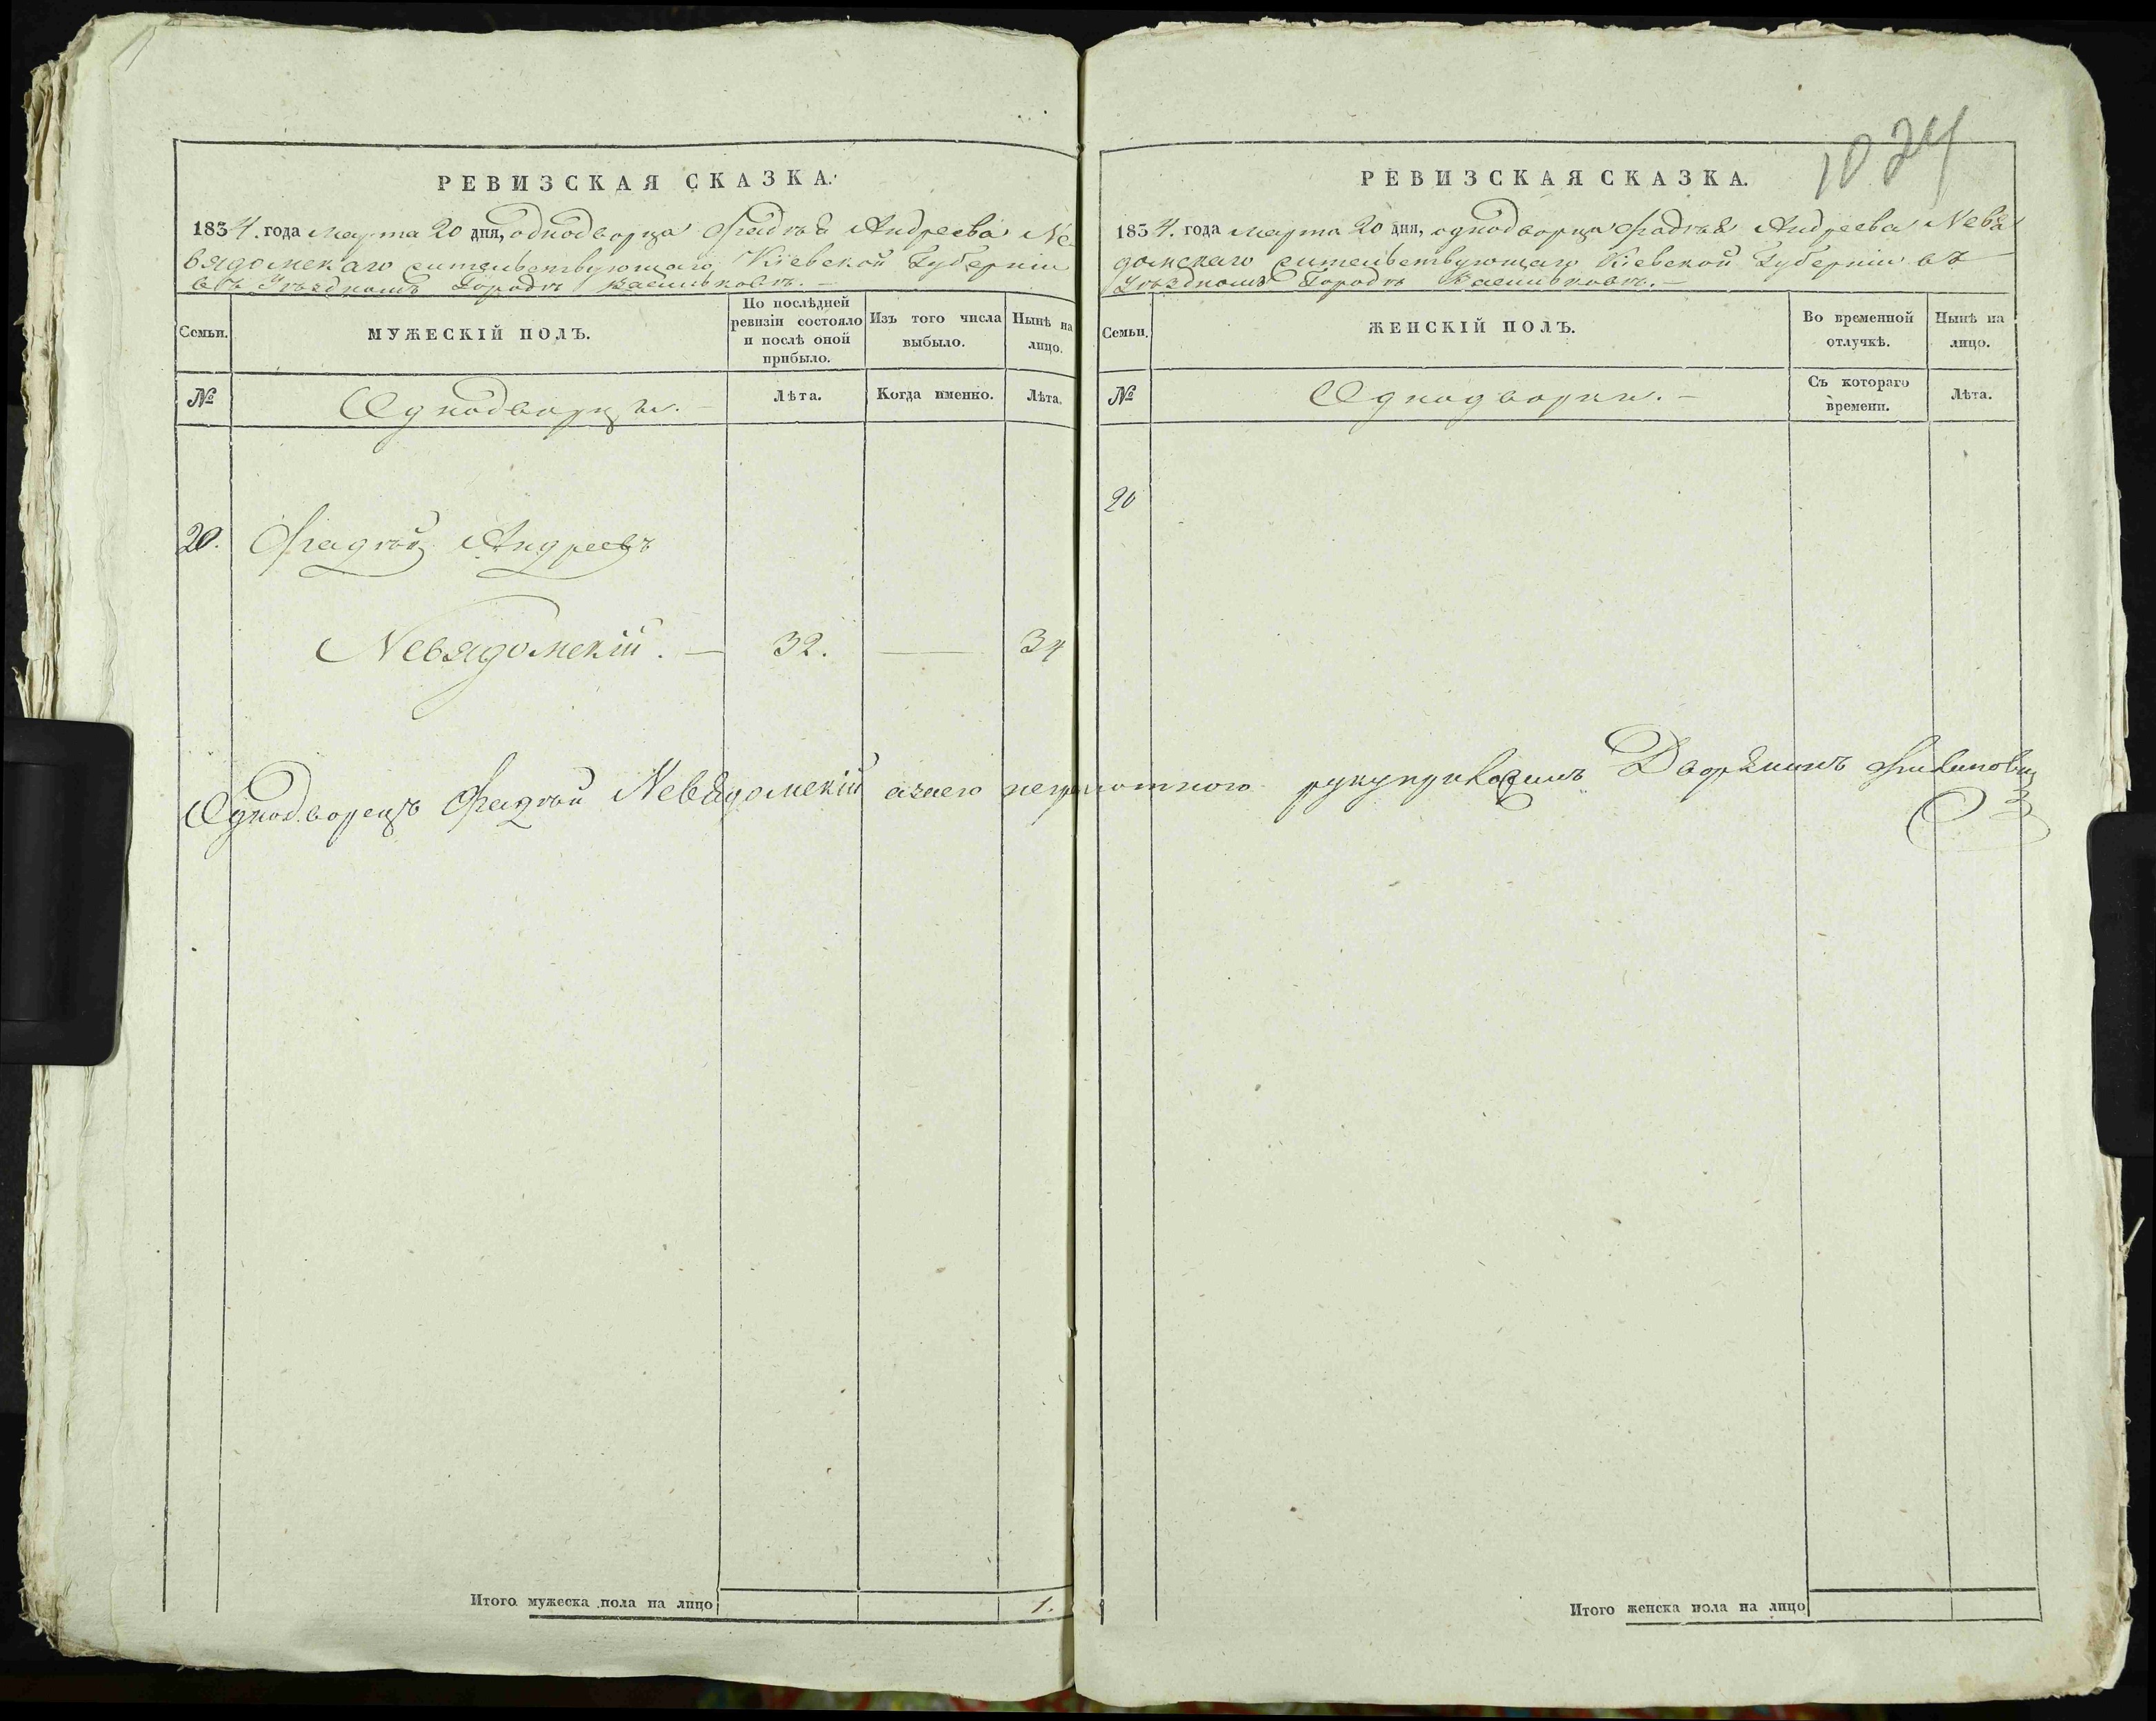 1024
РЕВИЗСКАЯ СКАЗКА.
1834. года марта 20 дня, однодворца Фадѣя Андреева Не-
вядомскаго жительствующаго Кіевской Губерніи
въ Уѣздномъ Городѣ Васильковѣ. —
Семьи.
МУЖЕСКІЙ ПОЛЪ.
По послѣдней ревизіи состояло и послѣ оной прибыло.
Изъ того числа выбыло.
Нынѣ на лицо.
№
Однодворцы. —
Лѣта.
Когда именно.
Лѣта.
20. Фадѣй Андреевъ
Невядомскій. — 32. — 34
Однодворецъ Фадѣй Невядомскій а за него неграмотного рукуприложилъ Дворянинъ
Итого мужеска пола на лицо 1.
РЕВИЗСКАЯ СКАЗКА.
1834. года марта 20 дня, однодворца Фадѣя Андреева Невя
домскаго жительствующаго Кіевской Губерніи въ
Уѣздномъ Городѣ Васильковѣ. —
Семьи.
ЖЕНСКІЙ ПОЛЪ.
Во временной отлучкѣ.
Нынѣ на лицо.
№
Однодворки. —
Съ котораго времени.
Лѣта.
20
Итого женска пола на лицо